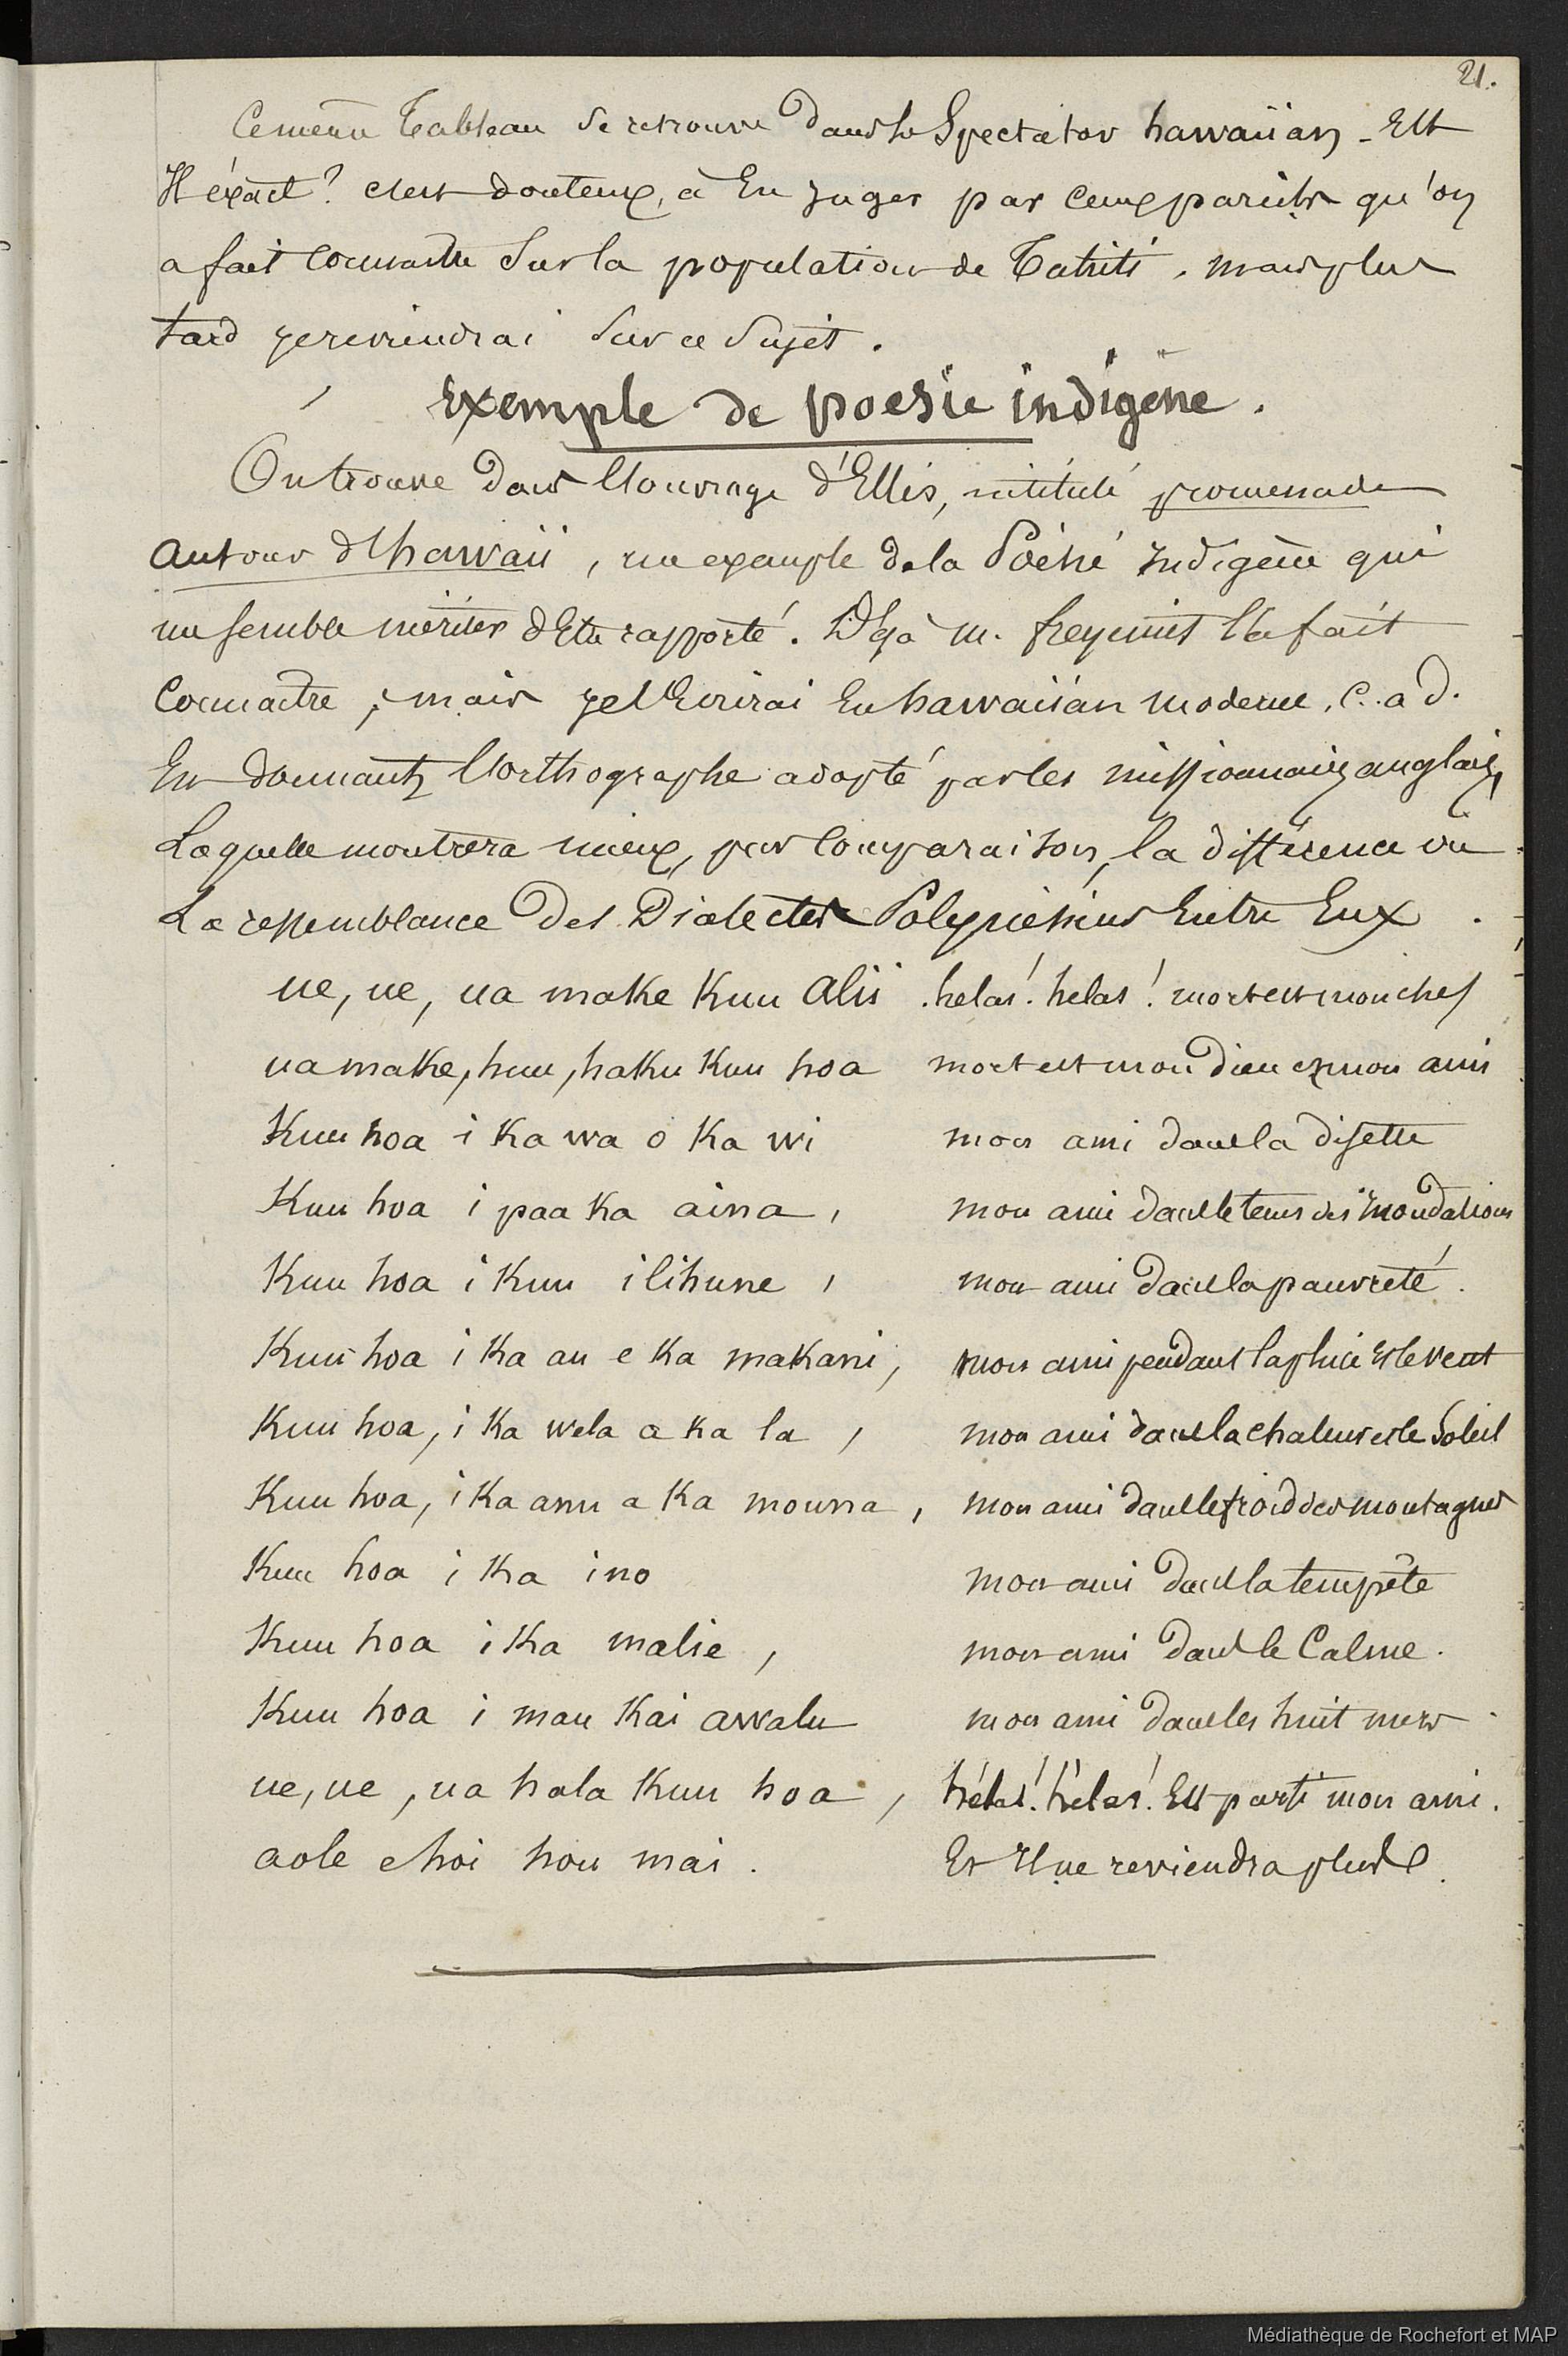 21.
Ce même Tableau se retrouve dans le Spectator hawaiian - Est
Il éxact? c'est douteux, à En juger par ceux pareils qu'on
a fait connaitre sur la population de Tahiti. mais plus
tard je reviendrai sur ce sujet.
Exemple de poesie indigène.
On trouve dans l'ouvrage d'Ellis, intitulé promenade
autour d'hawaii, un exemple de la Poésie indigène qui
me semble mériter d'Etre rapporté. Déjà M. freycinet l'a fait
Connaitre, mais je l'Ecrirai En hawaiian moderne, c. a d.
En donnant l'orthographe adopté par les missionnaires anglais,
Laquelle montrera mieux, par comparaison, la différence ou
La ressemblance des Dialectes Polynésiens Entre Eux.
ue, ue, ua make Kuu Alii . helas! helas! mort est mon chef
ua make, kuu, haku Kuu hoa mort est mon Dieu et mon ami
Kuu hoa i Ka wa o Ka wi mon ami dans la disette
Kuu hoa i paa Ka aina, mon ami dans le tems des inondations
Kuu hoa i Kuu ilihune, mon ami dans la pauvreté.
Kuu hoa i Ka au e Ka makani, mon ami pendant la pluie et le vent
Kuu hoa, i Ka wela a Ka la, mon ami dans la chaleur et le Soleil
Kuu hoa, i Ka anu a Ka mouna, mon ami dans le froid des montagnes
Kuu hoa i Ka ino mon ami dans la tempête
Kuu hoa i Ka malie, mon ami dans le Calme.
Kuu hoa i mau Kai awalu mon ami dans les huit mers.
ue, ue, ua hala Kuu hoa, hélas! hélas! Est parti mon ami.
aole e hoi hou mai. Et Il ne reviendra plus.
Médiathèque de Rochefort et MAP